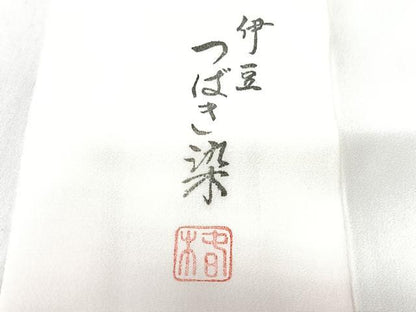 伊豆
つばき染